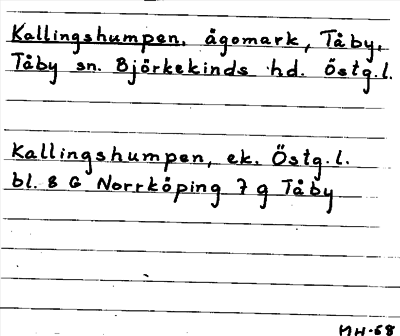 Kallingshumpen, ägomark, Tåby,
Tåby sn. Björkekinds hd. Östg.l.
Kallingshumpen, ek. Östg.l.
bl. 8 G Norrköping 7 g Tåby
MH-68